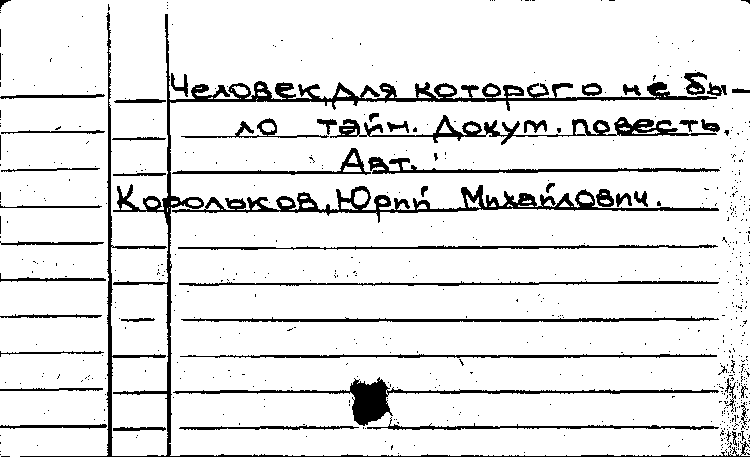 Человек, для которого не бы-
ло тайн. Докум. повесть.
Авт.:
Корольков, Юрий Михайлович.